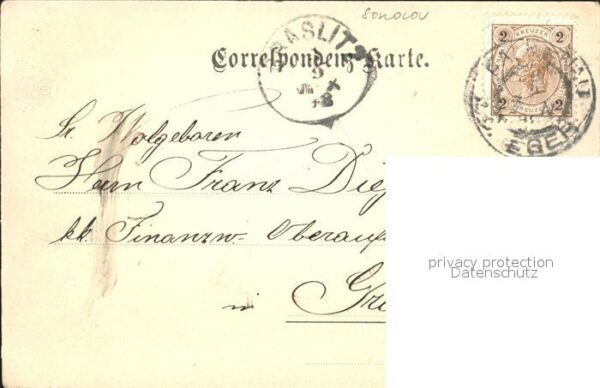 Sokolov
Correspondenz-Karte.
2 KREUZER 2
2 KREUZER 2
EGER
Sr. Wolgeboren
Herrn Franz
kk. Finanzw. Oberauf
in
privacy protection
Datenschutz